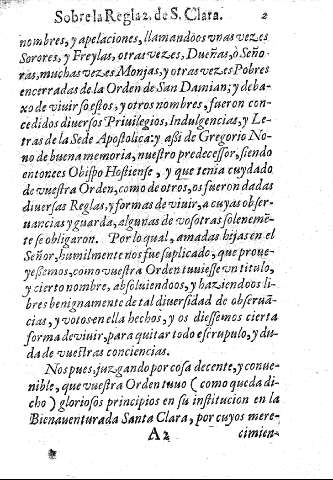 Sobre la Regla 2. de S. Clara. 2
nombres, y apelaciones, llamandoos vnas vezes
Sorores, y Freylas, otras vezes, Dueñas, ò Seño-
ras, muchas vezes Monjas, y otras vezes Pobres
encerradas de la Orden de San Damian; y deba-
xo de viuir so estos, y otros nombres, fueron con-
cedidos diuersos Priuilegios, Indulgencias, y Le-
tras de la Sede Apostolica: y assi de Gregorio No-
no de buena memoria, nuestro predecessor, siendo
entonces Obispo Hostiense, y que tenia cuydado
de vuestra Orden, como de otros, os fueron dadas
diuersas Reglas, y formas de viuir, a cuyas obser-
uancias y guarda, algunas de vosotras solenemẽ-
te se obligaron. Por lo qual, amadas hijas en el
Señor, humilmente nos fue suplicado, que proue-
yessemos, como vuestra Orden tuuiesse vn titulo,
y cierto nombre, absoluiendoos, y haziendoos li-
bres benignamente de tal diuersidad de obseruã-
cias, y votos en ella hechos, y os diessemos cierta
forma de viuir, para quitar todo escrupulo, y du-
da de vuestras conciencias.
Nos pues, juzgando por cosa decente, y conue-
nible, que vuestra Orden tuuo (como queda di-
cho) gloriosos principios en su institucion en la
Bienauenturada Santa Clara, por cuyos mere-
A 2 cimien-